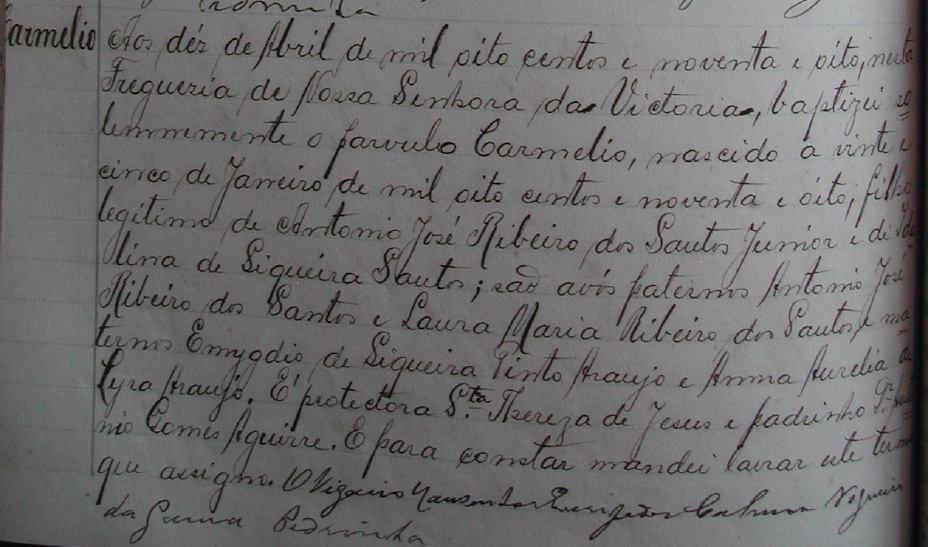 Carmelio
Aos déz de Abril de mil oito centos e noventa e oito, nesta
Freguezia de Nossa Senhora da Victoria, baptizei so
lemnemente o parvulo Carmelio, nascido a vinte e
cinco de Janeiro de mil oito centos e noventa e oito, filho
legitimo de Antonio José Ribeiro dos Santos Junior e de Ida
lina de Siqueira Santos; são avós paternos Antonio José
Ribeiro dos Santos e Laura Maria Ribeiro dos Santos, e ma
ternos Emygdio de Siqueira Pinto Araujo e Anna Aurelia de
Lyra Araujo. É protectora S.ta Thereza de Jesus e padrinho
nio Gomes Aguirre. E para constar mandei lavrar este termo
que assigno. O Vigario Nogueira
da Gama Pedrinha